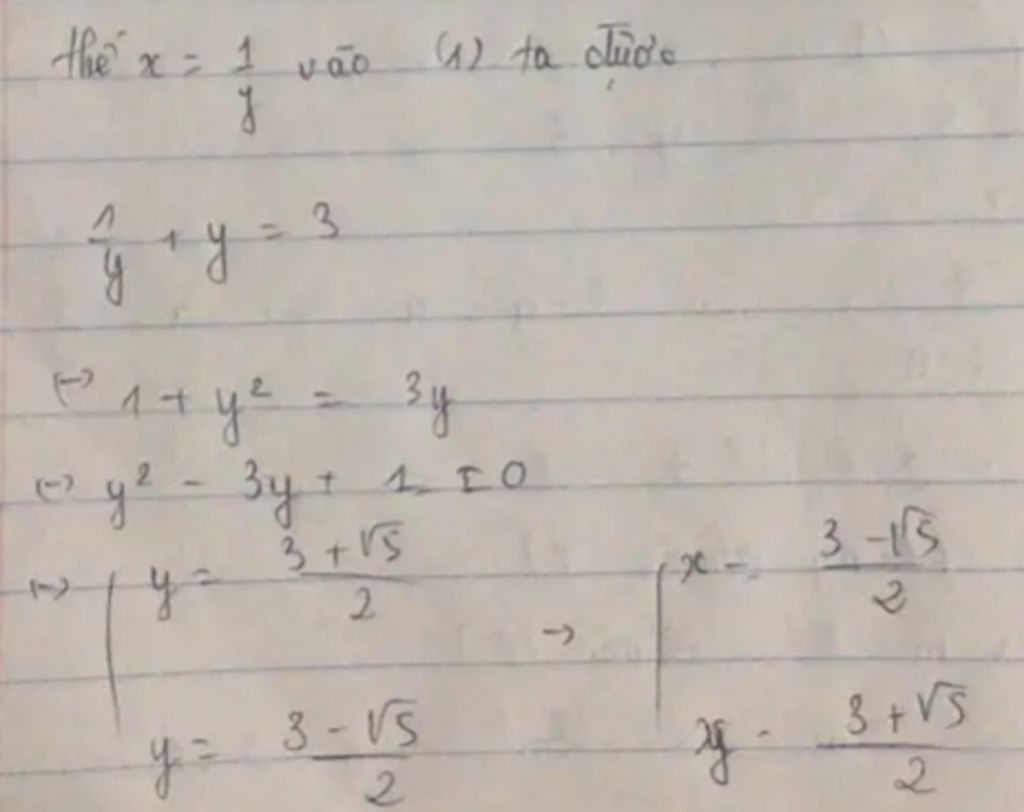 thế x = 1/y vào (1) ta được
1/y + y = 3
<-> 1 + y² = 3y
<-> y² - 3y + 1 = 0
<-> [ y = (3 + √5)/2 -> [ x = (3 - √5)/2
y = (3 - √5)/2 x = (3 + √5)/2